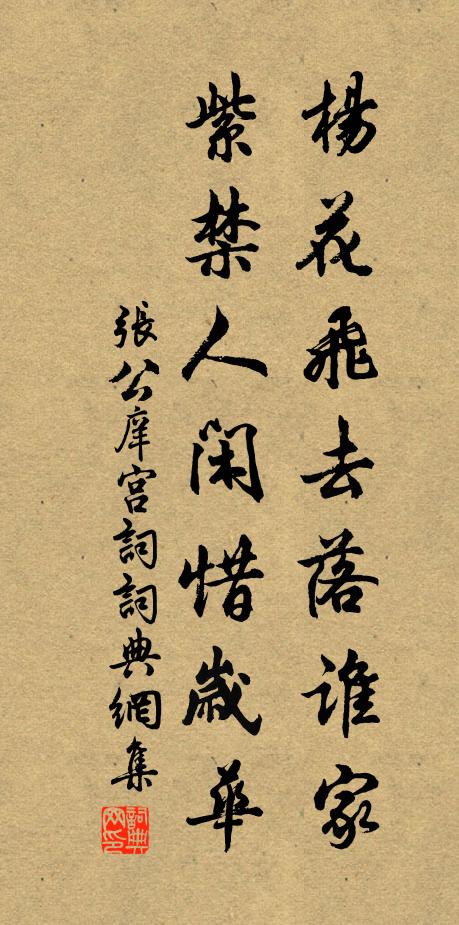 楊花飛去落誰家
紫禁人閑惜歲華
張公庠宮詞詞典網集
詞典網印